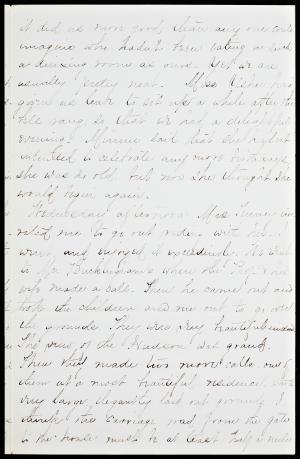 it did us more good than any one could
imagine who hadn't been eating in such
a dining room as ours. Yet we are
usually pretty near. Miss Fisher had
given us leave to sit up a while after the
bell rang, so that we had a delightful
evening. Minnie said that she hadn't
intended to celebrate any more birthdays
she was so old but now she thought she
would begin again.
Wednesday afternoon Mrs. in-
vited me to go out riding with her. I
went, and enjoyed it exceedingly. We went
to Mr. Buckingham's where the and his
wife made a call. Then he came out and
took the children and me out to go over
the grounds. They was very beautiful indeed
The view of the Hudson was grand.
Then they made two more calls one of
them at a most beautiful residence, with
very large elegantly laid out grounds. I
think the carriage road from the gate
to the house must be at least half a mile